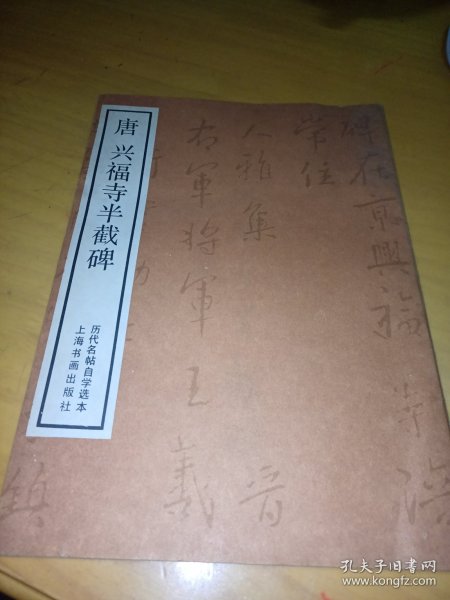 唐 兴福寺半截碑
历代名帖自学选本
上海书画出版社
碑在京兴福寺陪
常住
人雅集 晋
右军将军王羲
镇
孔夫子旧书网
www.kongfz.com